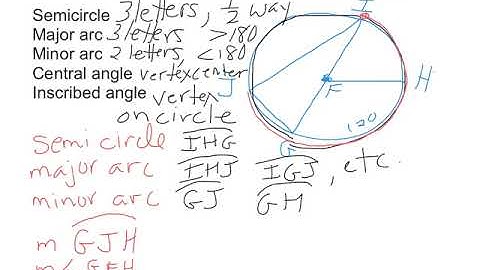 Semicircle 3 letters, 1/2 way
Major arc 3 letters >180
Minor arc 2 letters, <180
Central angle vertex center
Inscribed angle vertex
on circle
I
J
F
H
120
G
semicircle IHG
major arc IHJ IGJ, etc.
minor arc GJ GH
m GJH
m< GFH